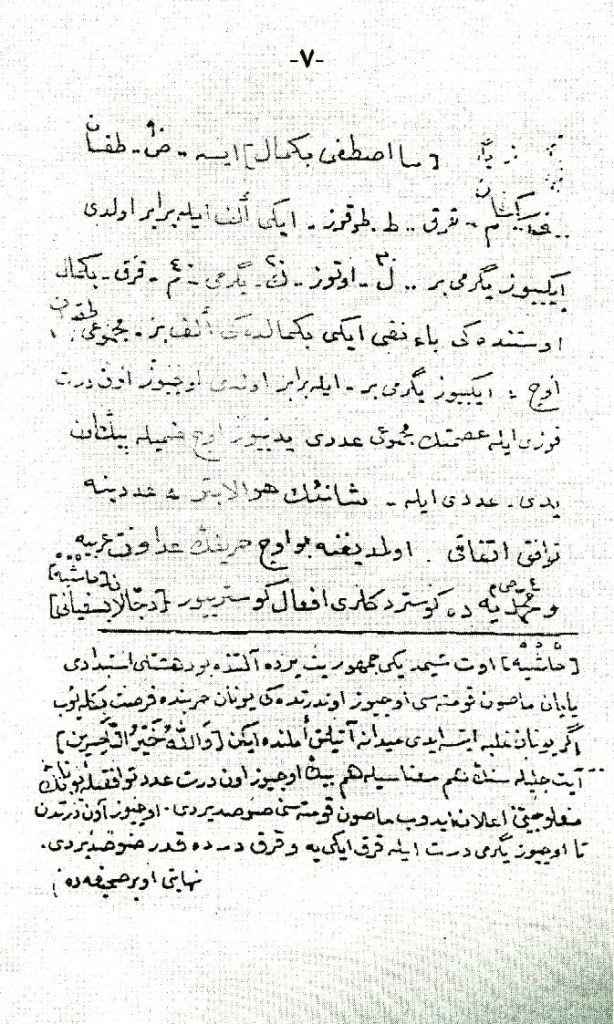 -٧-
[ـا اصطفی بكمال] ایسه - ض - طقسان
سكسان
م - قرق .. ط طوقوز - ایكی ألف ایله برابر اولدی
ایكییوز یگرمی بر .. ل ٣٠ - اوتوز - ك ٢٠ - یگرمی - م ٤٠ - قرق - بكمال
اوستنده كی باء نفی ایكی بكمالده كی ألف بر - مجموعی
اوچ : ایكییوز یگرمی بر - ایله برابر اولدی اوچیوز اون درت
فوزی ایله عصمتك مجموعی عددی یدییوز اوچ ضمیله بیك اون
یدی. عددی ایله - شانئك هوالابتر - عددینه
توافق اتفاقی . اولمدیغنه بو اوچ حریفك عداوت عربیه
و محمدیه ده كوستردكلری افعال كوستریور [دجالا سفیانی] [حاشیه]
[حاشیه] اوت شیمدیكی جمهوریت پرده آلتنده بو دهشتلی استبدادی
یاپان ماصون قومته سی اوچیوز اوندرتده كی یونان حربنده فرصت بكله یوب
اگر یونان غلبه ایتسه ایدی میدانه آتیلمق أملنده ایكن [وَاللّٰهُ خَيْرُ النَّاصِرِينَ]
آیت جلیله سنك معناسیله هم بیك اوچیوز اون درت عدد توافقیله یونانك
مغلوبیتی اعلان ایدوب ماصون قومته سی صوصدیردی. اوچیوز اون درتدن
تا اوچیوز یگرمی درت ایله قرق ایكی یه و قرق درده قدر صوصدیردی.
نهایتی اوبر صحیفه ده